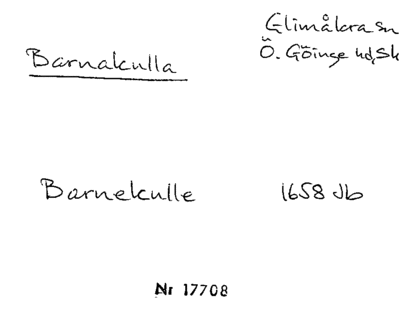 Glimåkra sn
Ö. Göinge hd, Sk
Barnakulla
Barnekulle 1658 Jb
Nr 17708